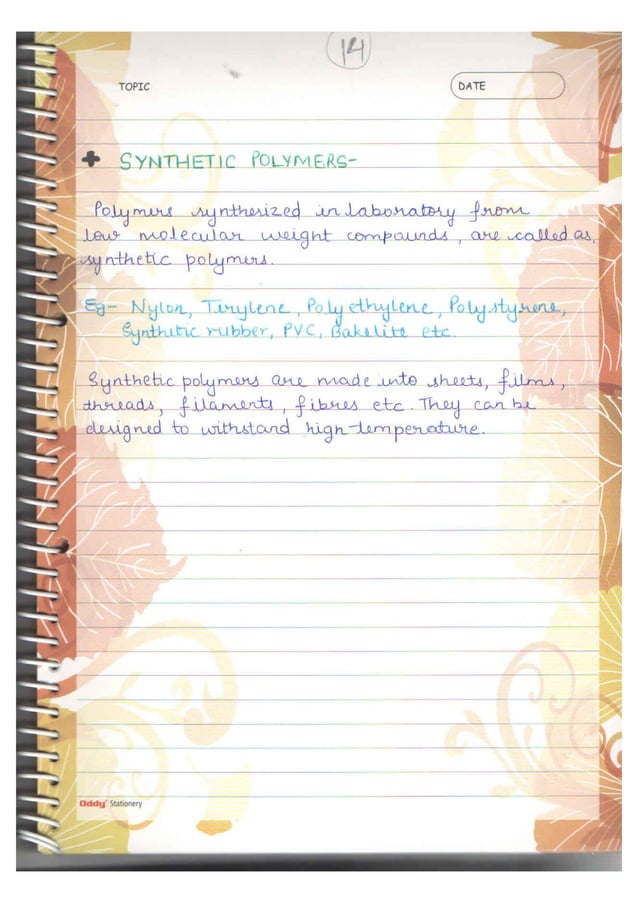 14
TOPIC
DATE
+ SYNTHETIC POLYMERS-
Polymers synthesized in laboratory from
low molecular weight compounds, are called as,
synthetic polymers.
Eg- Nylon, Terylene, Polyethylene, Polystyrene,
Synthetic rubber, PVC, Bakelite etc.
Synthetic polymers are made into sheets, films,
threads, filaments, fibres etc. They can be
designed to withstand high-temperature.
Oddy Stationery